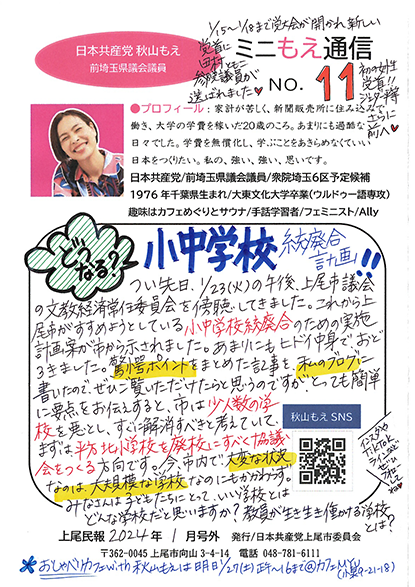 日本共産党 秋山もえ
前埼玉県議会議員
1/15〜1/18まで党大会が開かれ、新しい
党首に
田村ともこ
参院議員が
選ばれました♥
ミニもえ通信
NO. 11
初の女性
党首!!
ジェンダー平等
さらに
前へ♥
●プロフィール：家計が苦しく、新聞販売所に住み込みで
働き、大学の学費を稼いだ20歳のころ。あまりにも過酷な
日々でした。学費を無償化し、学ぶことをあきらめなくていい
日本をつくりたい。私の、強い、強い、思いです。
日本共産党/前埼玉県議会議員/衆院埼玉6区予定候補
1976年千葉県生まれ/大東文化大学卒業(ウルドゥー語専攻)
趣味はカフェめぐりとサウナ/手話学習者/フェミニスト/Ally
どうなる?
小中学校 統廃合計画!!
つい先日、1/23(火)の午後、上尾市議会
の文教経済常任委員会を傍聴してきました。これから上
尾市がすすめようとしている小中学校統廃合のための実施
計画案が市から示されました。あまりにもヒドイ中身で、おど
ろきました。驚愕ポイントをまとめた記事を、私のブログに
書いたので、ぜひご覧いただけたらと思うのですが、とっても簡単
に要点をお伝えすると、市は少人数の学
校を悪とし、すぐに解消すべきと考えていて、
まずは、平方北小学校を廃校にすべく協議
会をつくる方向です。今、市内で大変な状況
なのは、大規模な学校なのにもかかわらず。
みなさんは子どもたちにとって、いい学校とは
どんな学校だと思いますか？教員が生き生き働ける学校
とは？
秋山もえ SNS
上尾民報 2024年 1月号外 発行/日本共産党上尾市委員会
〒362-0045 上尾市向山3-4-14 電話 048-781-6111
*おしゃべりカフェwith秋山もえは明日1/27(土)正午〜16まで@カフェMYU(小敷谷21-18)